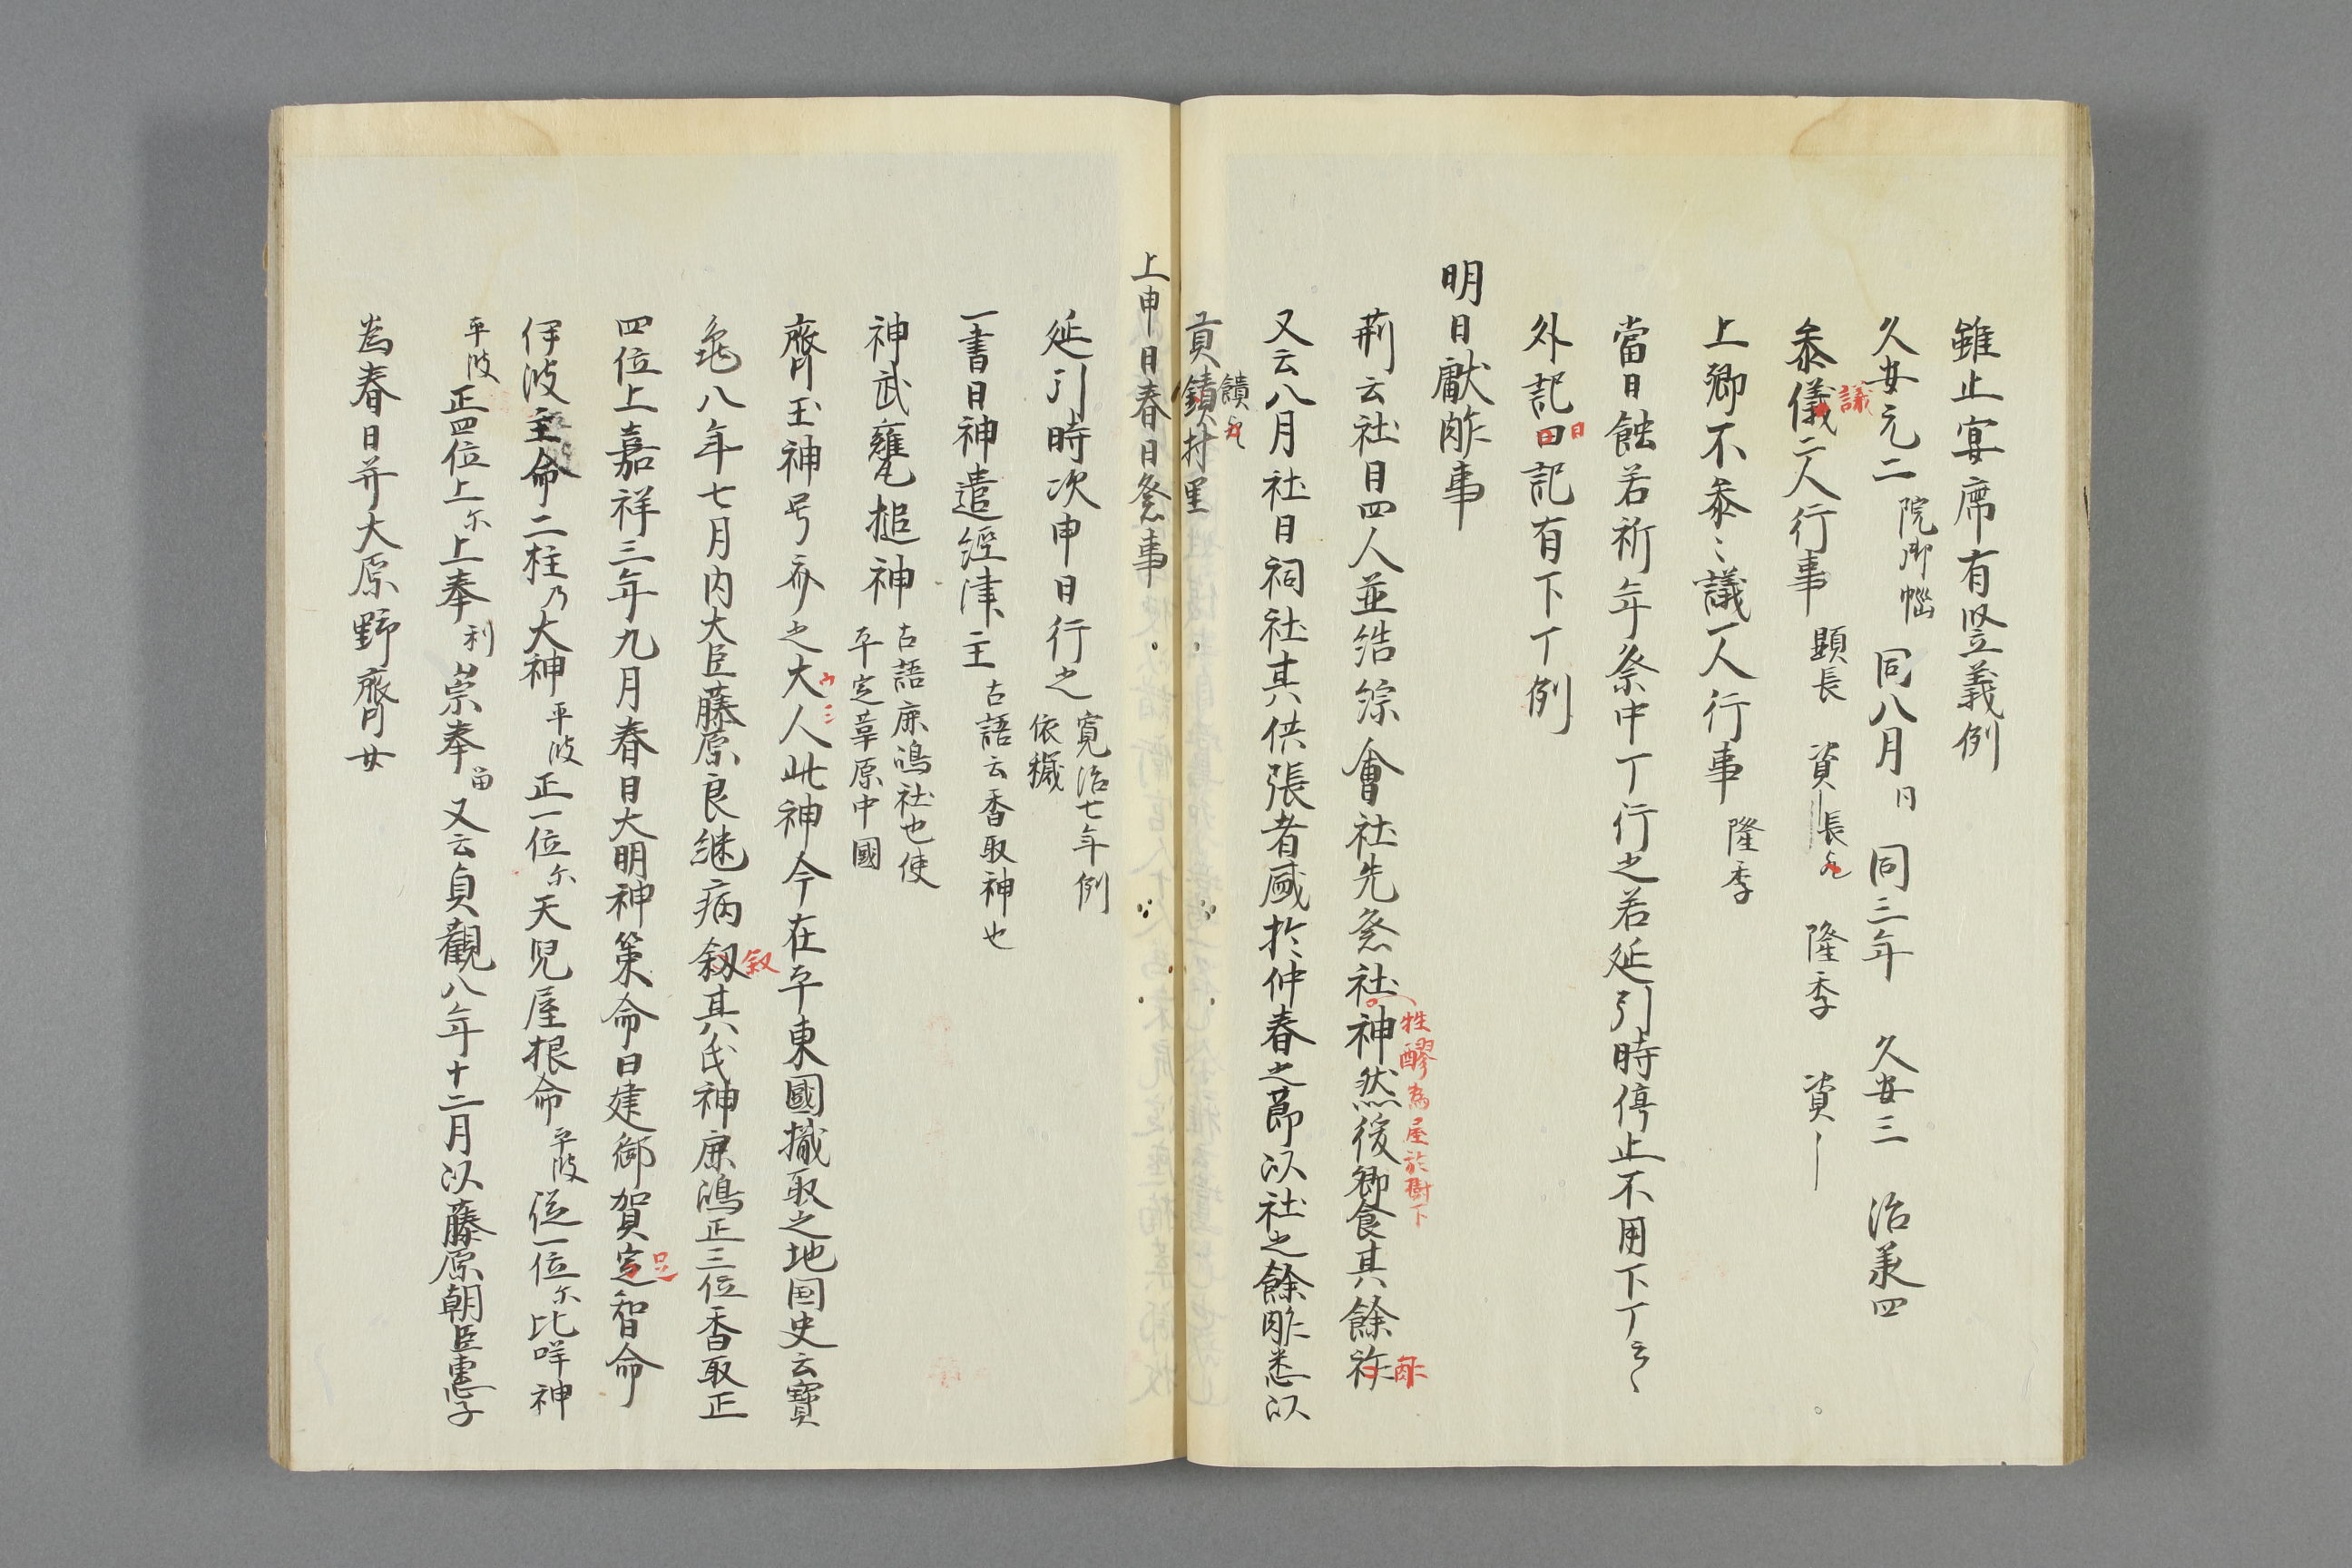 雖止宴席有竪義例
久安元二 院御惱 同八月日 同三年 久安三 治承四
参儀二人行事 顕長 資長 隆季 資〡
議
上卿不参々議一人行事 隆季
當日蝕若祈年祭中丁行之若延引時停止不用下丁云々
外記日記有下丁例
日
明日献胙事
荊云社日四人並结綜會社先祭社神然後郷食其餘祚
牲醪為屋於樹下
胙
又云八月社日祠社其供張者盛於仲春之節以社之餘胙悉以
貢鐼村里
饋
上申日春日祭事
延引時次申日行之 寛治七年例
依穢
一書曰神遣經津主 古語云香取神也
神武甕槌神 古語鹿嶋社也使
平定葦原中國
齊主神号亦之大人此神今在平東國擮取之地国史云寶
ウシ
龜八年七月内大臣藤原良継病釼其氏神鹿鴻正三位香取正
叙
四位上嘉祥三年九月春日大明神策命曰建御賀定智命
足
伊波主命二柱乃大神平波正一位尓天児屋根命平波従一位尓比咩神
平波正四位上尓上奉利崇奉留又云貞觀八年十二月以藤原朝臣恵子
為春日并大原野齊女